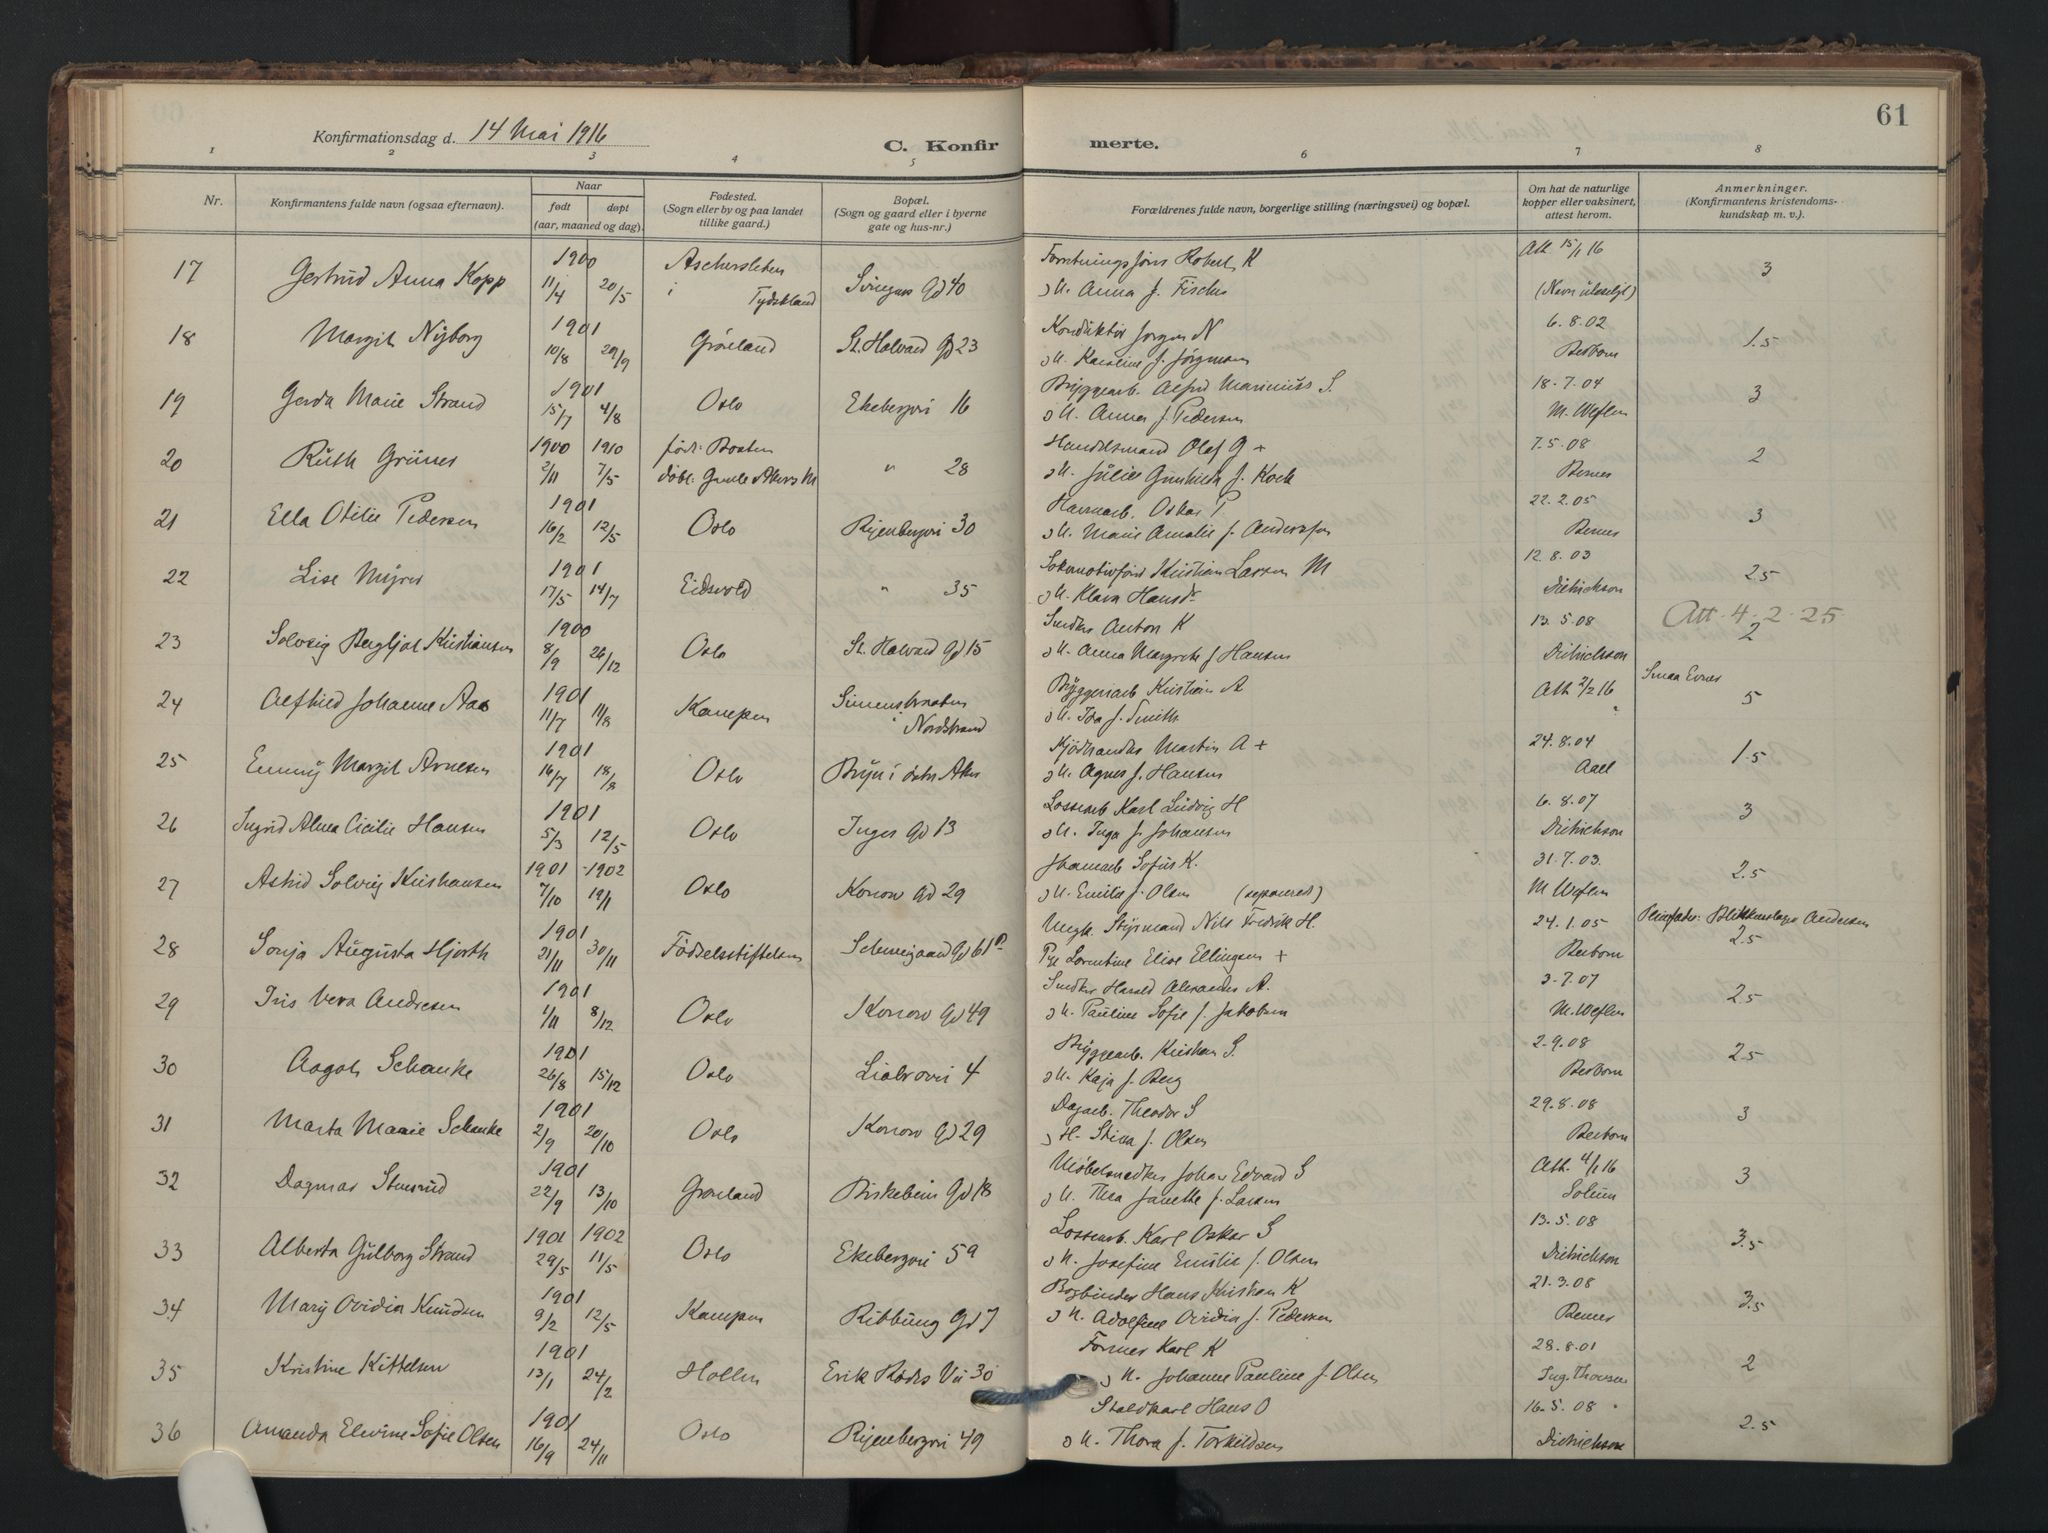 61
Konfirmationsdag d. 14 Mai 1916
C. Konfir merte.
1 2 3 4 5 6 7 8
Nr.
Konfirmantens fulde navn (ogsaa efternavn).
Naar
født døpt
(aar, maaned og dag).
Fødested.
(Sogn eller by og paa landet
tillike gaard.)
Bopæl.
(Sogn og gaard eller i byerne
gate og hus-nr.)
Forældrenes fulde navn, borgerlige stilling (næringsvei) og bopæl.
Om hat de naturlige
kopper eller vaksinert,
attest herom.
Anmerkninger.
(Konfirmantens kristendoms-
kundskap m. v.)
1900 Aschersleben Robert K Att. 15/1 16
17 Gertrud Anna Kopp 11/4 20/5 i Tydskland Gd 40 Anna f. Fischer (Navn ulæseligt) 3
1901 Konduktør Jørgen N 6.8.02
18 Margit Nyborg 10/8 29/9 Grønland St. Halvard Gd 23 o H. Karoline f. Jørgensen 1.5
1901 Bryggearb. Alfred Marinius S. 18.7.04
19 Gerda Marie Strand 15/7 4/8 Oslo Ekebergvei 16 o H. Anna f. Pedersen M. Weflen 3
1900 1910 født: Boston Handelsmand Olaf G + 7.5.08
20 Ruth Grünes 2/11 7/5 døbt: Gamle Akers M " 28 o H. Julie f. Koch 2
1901 Havnearb. Oskar P. 22.2.05
21 Ella Otilie Pedersen 16/2 12/5 Oslo Ryenbergvei 30 o H. Marie Amalie f. Anderssen 3
1901 Lokomotivfører Kristian Larsen M 12.8.03
22 Lise Myrer 17/5 14/7 Eidsvold " 35 o H. Klara Hansdr Dietrichson 2.5
1900 Snedker Anton K 13.5.08 Att. 4-2-25
23 Solveig Bergljot Kristiansen 8/9 26/12 Oslo St. Halvard Gd 15 o H. Anna Margrete f. Hansen Dietrichson 2
1901 Bryggeriarb Kristian A Att. 2/2 16 Smaa Evner
24 Alfhild Johanne Aas 11/7 11/8 Kampen Simenstraaten i Nordstrand o H. Ida f. Smith 5
1901 Kjødhandler Martin A + 24.8.04
25 Emmy Margit Arnesen 16/7 18/8 Oslo Bryn i østre Aker o H. Agnes f. Hansen Aall 1.5
1901 Lossearb Karl Ludvig H 6.8.07
26 Ingrid Alma Cicilie Hansen 5/3 12/5 Oslo Inges Gd 13 o H. Inga f. Johansen Dietrichson 3
1901 -1902 Sofus K. 31.7.03.
27 Astrid Solveig Kristiansen 7/10 19/1 Oslo Konow Gd 29 o H. Emilie f. Olsen (separeret) M Weflen 2.5
1901 Ungk. Styrmand Nils Fredrik H. 24.1.05 Pleiefader: Blikkenslager Andersen
28 Sonja Augusta Hjorth 21/11 30/11 Fødselsstiftelsen Schweigaard Gd 61 Pge Lorentine Elise Ellingsen + 2.5
1901 Snedker Harald Alexander A. 3.7.07
29 Iris Vera Andresen 1/11 8/12 Oslo Konow Gd 49 o H. Pauline Sofie f. Jakobsen M. Weflen 2.5
1901 Bryggearb. Kristian S. 2.9.08
30 Aagot Schanke 26/8 15/12 Oslo Liabrovei 4 o H. Kaja f. Berg 2.5
1901 Dagarb. Theodor S 29.8.08
31 Marta Marie Schanke 2/9 20/10 Oslo Konow Gd 29 o H. f. Olsen 3
1901 Møbelsnedker Johan Edvard S Att. 4/1 16
32 Dagmar 22/9 13/10 Grønland Birkebein Gd 18 o H. Thea Janette f. Larsen Solum 3
1901 1902 Lossearb. Karl Oskar S 13.5.08
33 Alberta Gulborg Strand 29/5 11/5 Oslo Ekebergvei 59 o H. Josefine Emilie f. Olsen Dietrichson 3.5
1901 Bogbinder Hans Kristian K 21.3.08
34 Mary Ovidia Knudsen 9/2 12/5 Kampen Ribbung Gd 7 o H. Adolfine Ovidia f. Pedersen 3.5
1901 Former Karl K 28.8.01
35 Kristine Kittelsen 13/1 24/2 Hollen Erik Rødes Vei 30 o H. Johanne Pauline f. Olsen 2
1901 Staldkarl Hans O 16.5.08
36 Amanda Elvine Sofie Olsen 16/9 24/11 Oslo Ryenbergvei 49 o H. Thora f. Torkildsen Dietrichson 2.5